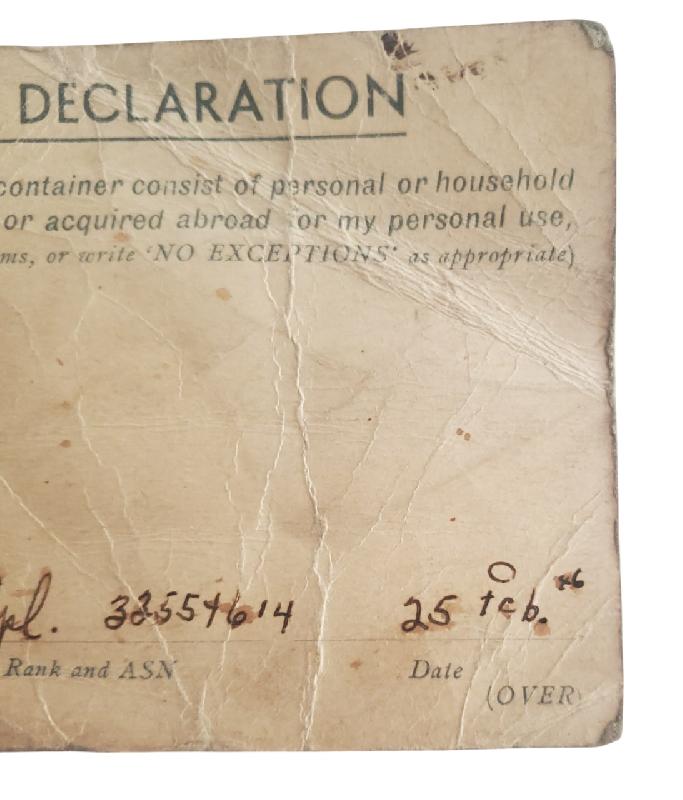 DECLARATION
container consist of personal or household
or acquired abroad for my personal use,
ms, or write 'NO EXCEPTIONS' as appropriate)
pl. 33554614
25 Feb. 46
Rank and ASN Date
(OVER)